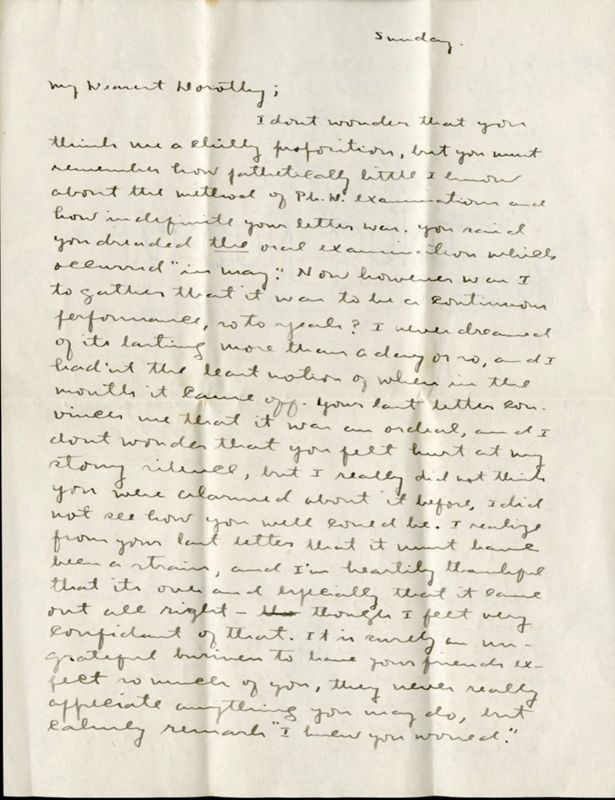 Sunday.
My Dearest Dorothy;
I dont wonder that you
think me a chilly proposition, but you must
remember how pathetically little I know
about the method of Ph.D. examinations and
how indefinite your letter was. You said
you dreaded the oral examination which
occurred "in May". Now however was I
to gather that it was to be a continuous
performance, so to speak? I never dreamed
of its lasting more than a day or so, and I
had'nt the least notion of when in the
month it came off. Your last letter con-
vinces me that it was an ordeal, and I
dont wonder that you felt hurt at my
stony silence, but I really did not think
you were alarmed about it before, I did
not see how you well could be. I realize
from your last letter that it must have
been a strain, and I'm heartily thankful
that its over and especially that it came
out all right - though I felt very
confidant of that. It is surely an un-
grateful business to have your friends ex-
pect so much of you, they never really
appreciate anything you may do, but
calmly remark "I knew you would."